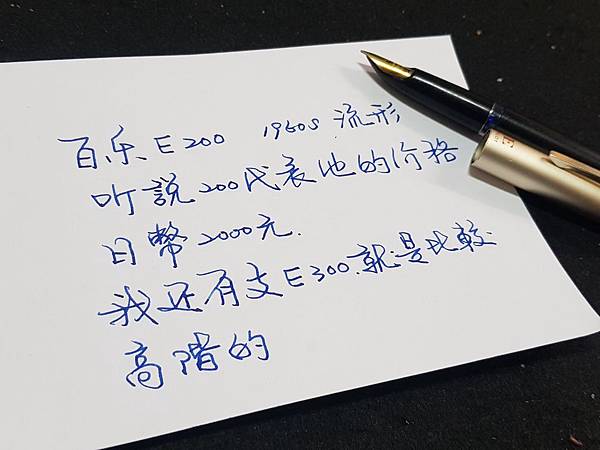 百乐E200 1960s 流形
听說200代表他的价格
日幣2000元.
我还有支E300.就是比較
高階的